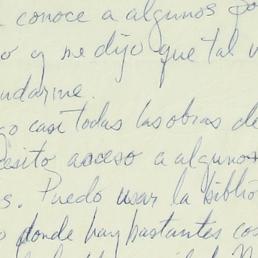 conoce a algunos po
o y me dijo que tal v
udarme.
go casi todas las obras de
cesito acceso a algunos
s. Puedo usar la biblio
o donde hay bastantes cos